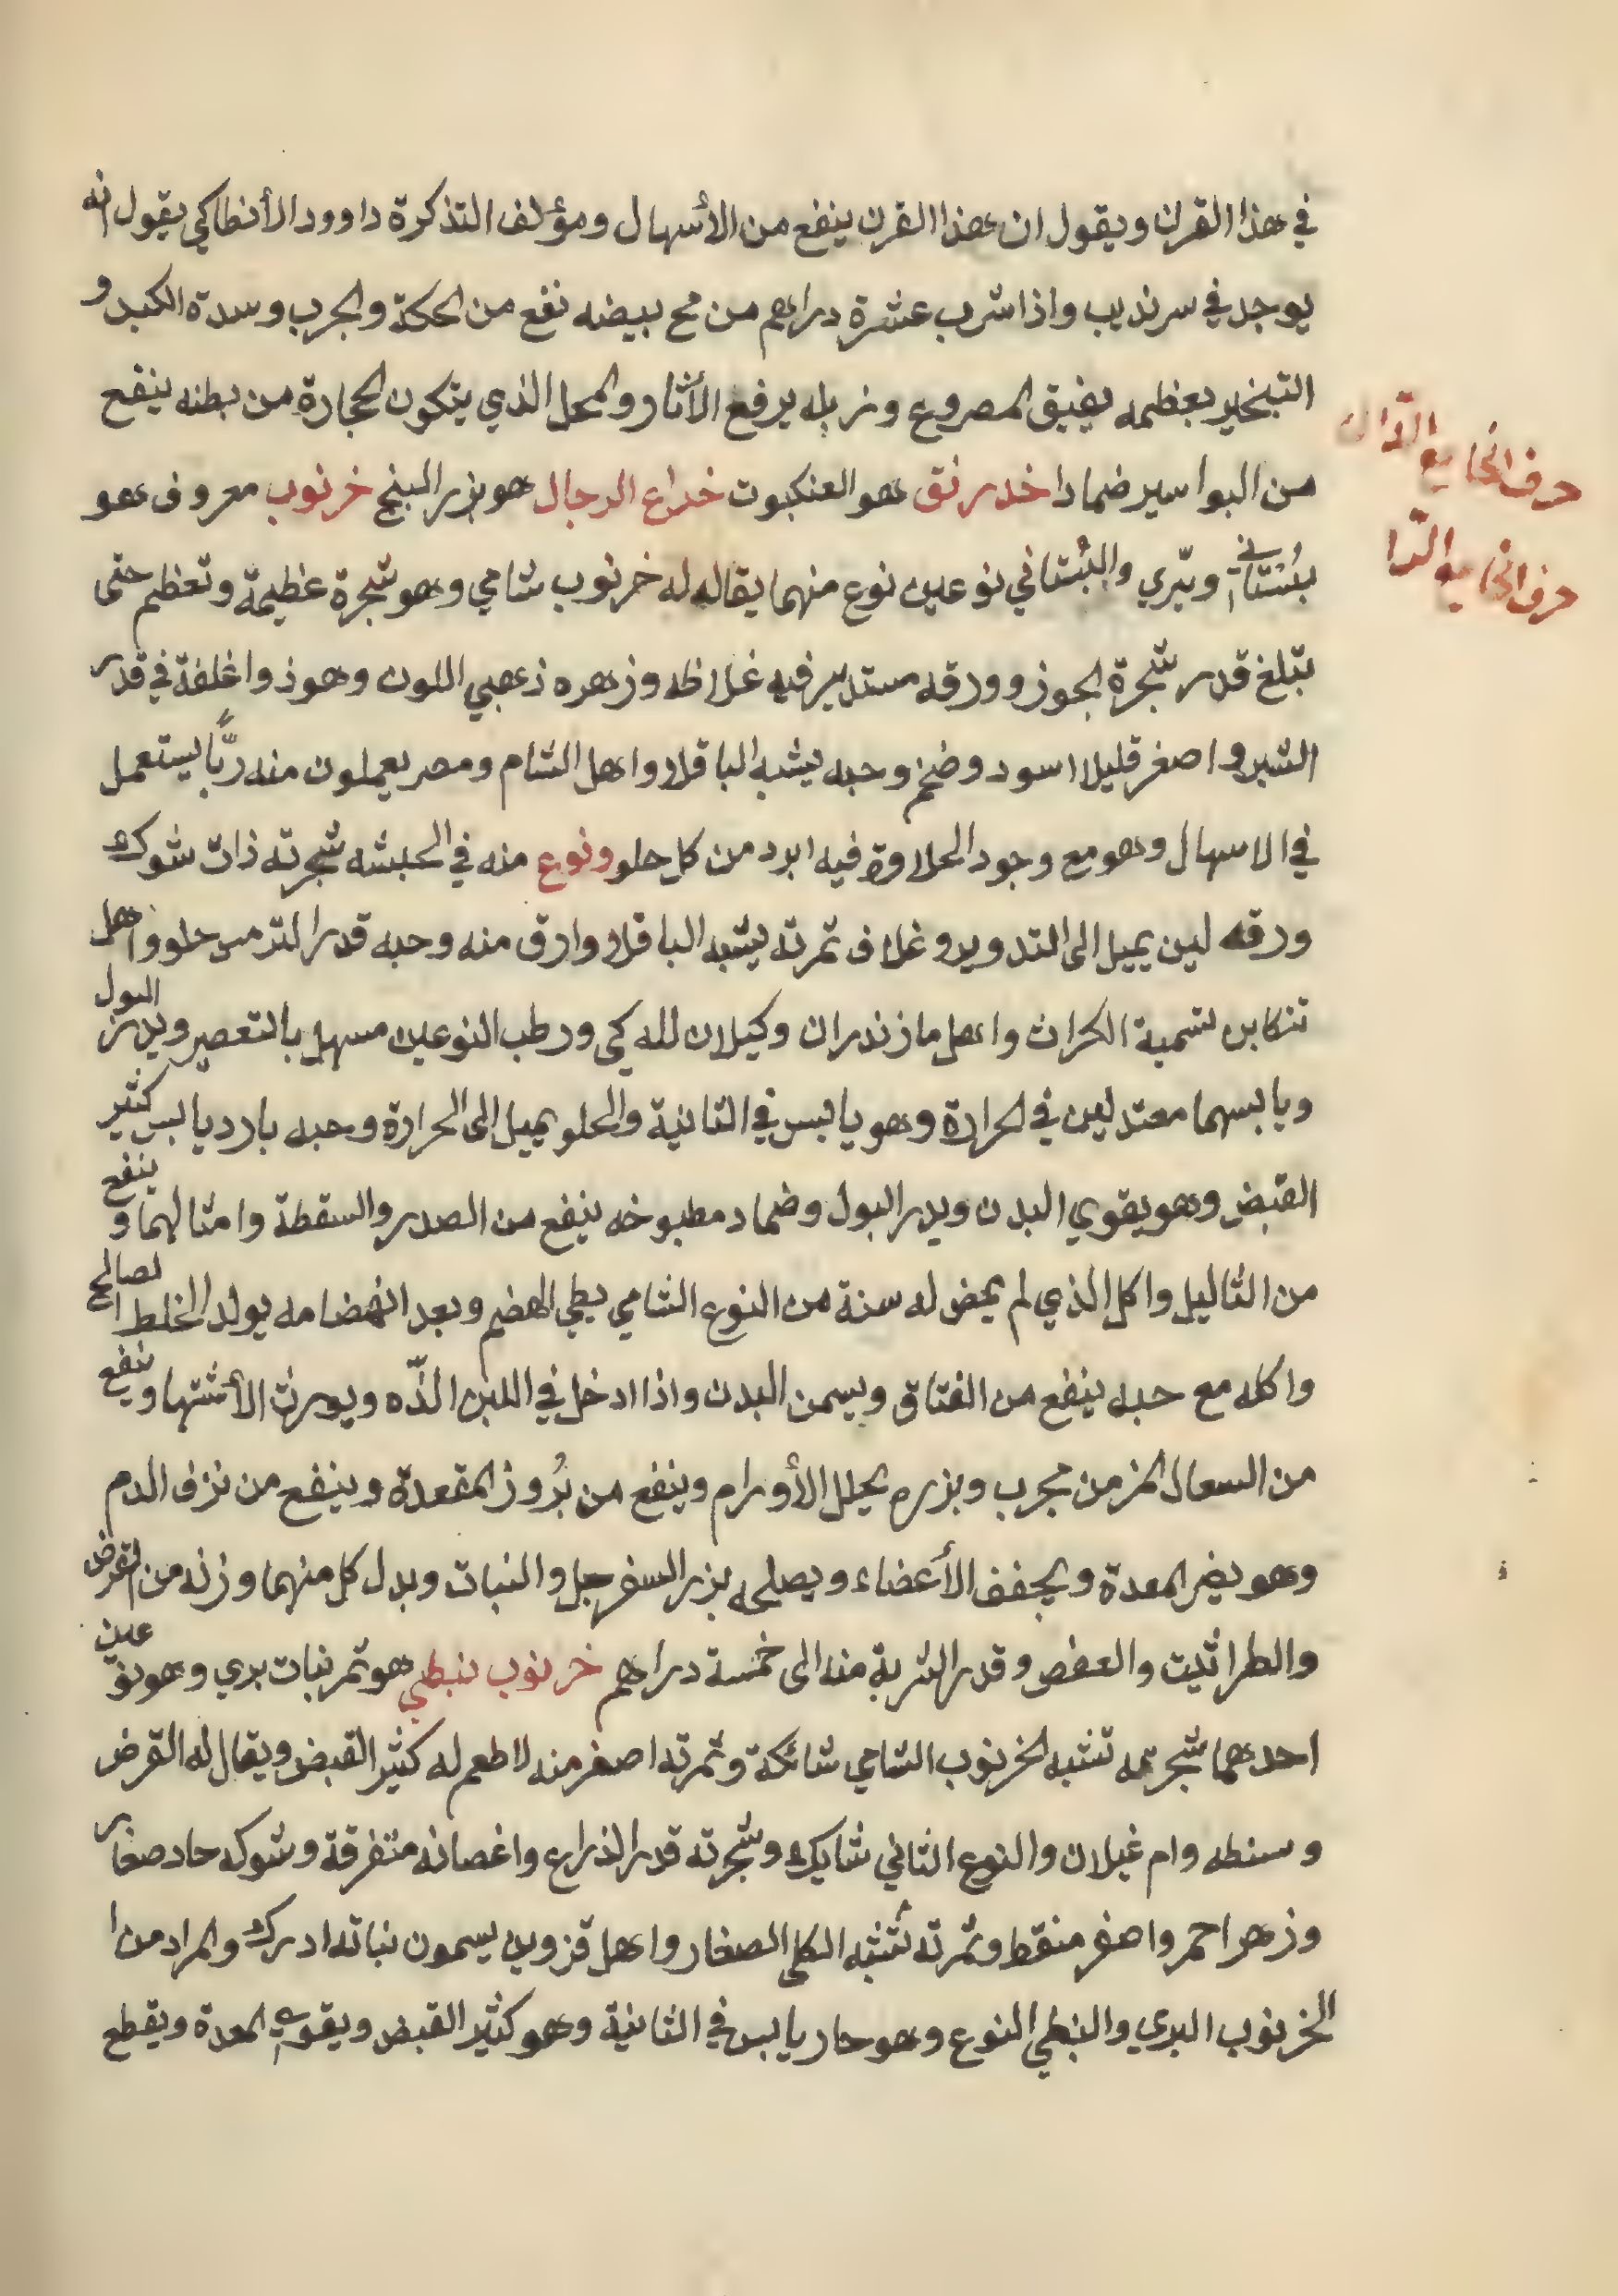 في هذا القرن ويقول ان هذا القرن ينفع من الأسهال ومؤلف التذكرة داوود الأنطاكي يقول انه
يوجد في سرنديب واذا شرب عشرة دراهم من مح بيضه نفع من الحكة والجرب وسدة الكبد و
التبخير بعظمه يفيق المصروع وزبله يرفع الأثار والمحل الذي يتكون الحجارة من بطنه ينفع
من البواسير ضمادا خدرنق هو العنكبوت خداع الرجال هو بزر البنج خرنوب معروف هو
بُسْتَاني وبّري والبُستاني نوعين نوع منهما يقاله له خرنوب شامي وهو شجرة عظيمة وتعظم حتى
تبلغ قدر شجرة الجوز وورقه مستدير فيه غلاظه وزهره ذهبي اللون وهو ذو اغلفة في قدر
الشبر واصغر قليلا اسود وضخم وحبه يشبه الباقلا واهل الشام ومصر يعملون منه ربًّا يستعمل
في الاسهال وهو مع وجود الحلاوة فيه ابرد من كل حلو ونوع منه في الحبشه شجرته ذات شوك
ورقه لين يميل الى التدوير وغلاف ثمرته يشبه الباقلا وارق منه وحبه قدر الترمس حلو واهل
تنكابن تسمية الكراث واهل مازندران وكيلان لله كي ورطب النوعين مسهل بالتعصير ويدر البول
ويابسهما معتدلين في الحرارة وهو يابس في الثانية والحلو يميل الى الحرارة وحبه بارد يابس كثير
القبض وهو يقوي البدن ويدر البول وضماد مطبوخه ينفع من الصدر والسقطة وامثالهما وينفع
من الثاليل واكل الذي لم يمض له سنة من النوع الشامي بطي الهضم وبعد انهضامه يولد الخلط الصالح
واكله مع حبه ينفع من الفتاق ويسمن البدن واذا ادخل في اللبن الذّه ويورث الأشتها وينفع
من السعال المزمن مجرب وبزره يحلل الأورام وينفع من بُروز المقعدة وينفع من نزف الدم
وهو يضر المعدة ويجفف الأعضاء ويصلحه بزر السفرجل والنبات وبدل كل منهما وزنه من القرض
والطراثيث والعفص وقدر الشربة منه الى خمسة دراهم خرنوب نبطي هو ثمر نبات بري وهو نوعين
احدهما شجرته تشبه الخرنوب الشامي شائكة وثمرته اصغر منه لا طعم له كثير القبض ويقال له القرض
وسنطه وام غيلان والنوع الثاني شايك وشجرته قدر الذراع واغصانه متفرقة وشوكه حاد صغار
وزهر احمر واصفر منقط وثمرته تُشبه الكلى الصغار واهل قزوين يسمون نباته ادرك والمراد من ا
الخرنوب البري والنبطي النوع وهو حار يابس في الثانية وهو كثير القبض ويقوي المعدة ويقطع
حرف الخا مع الدّال
حرف الخا مع الرّا